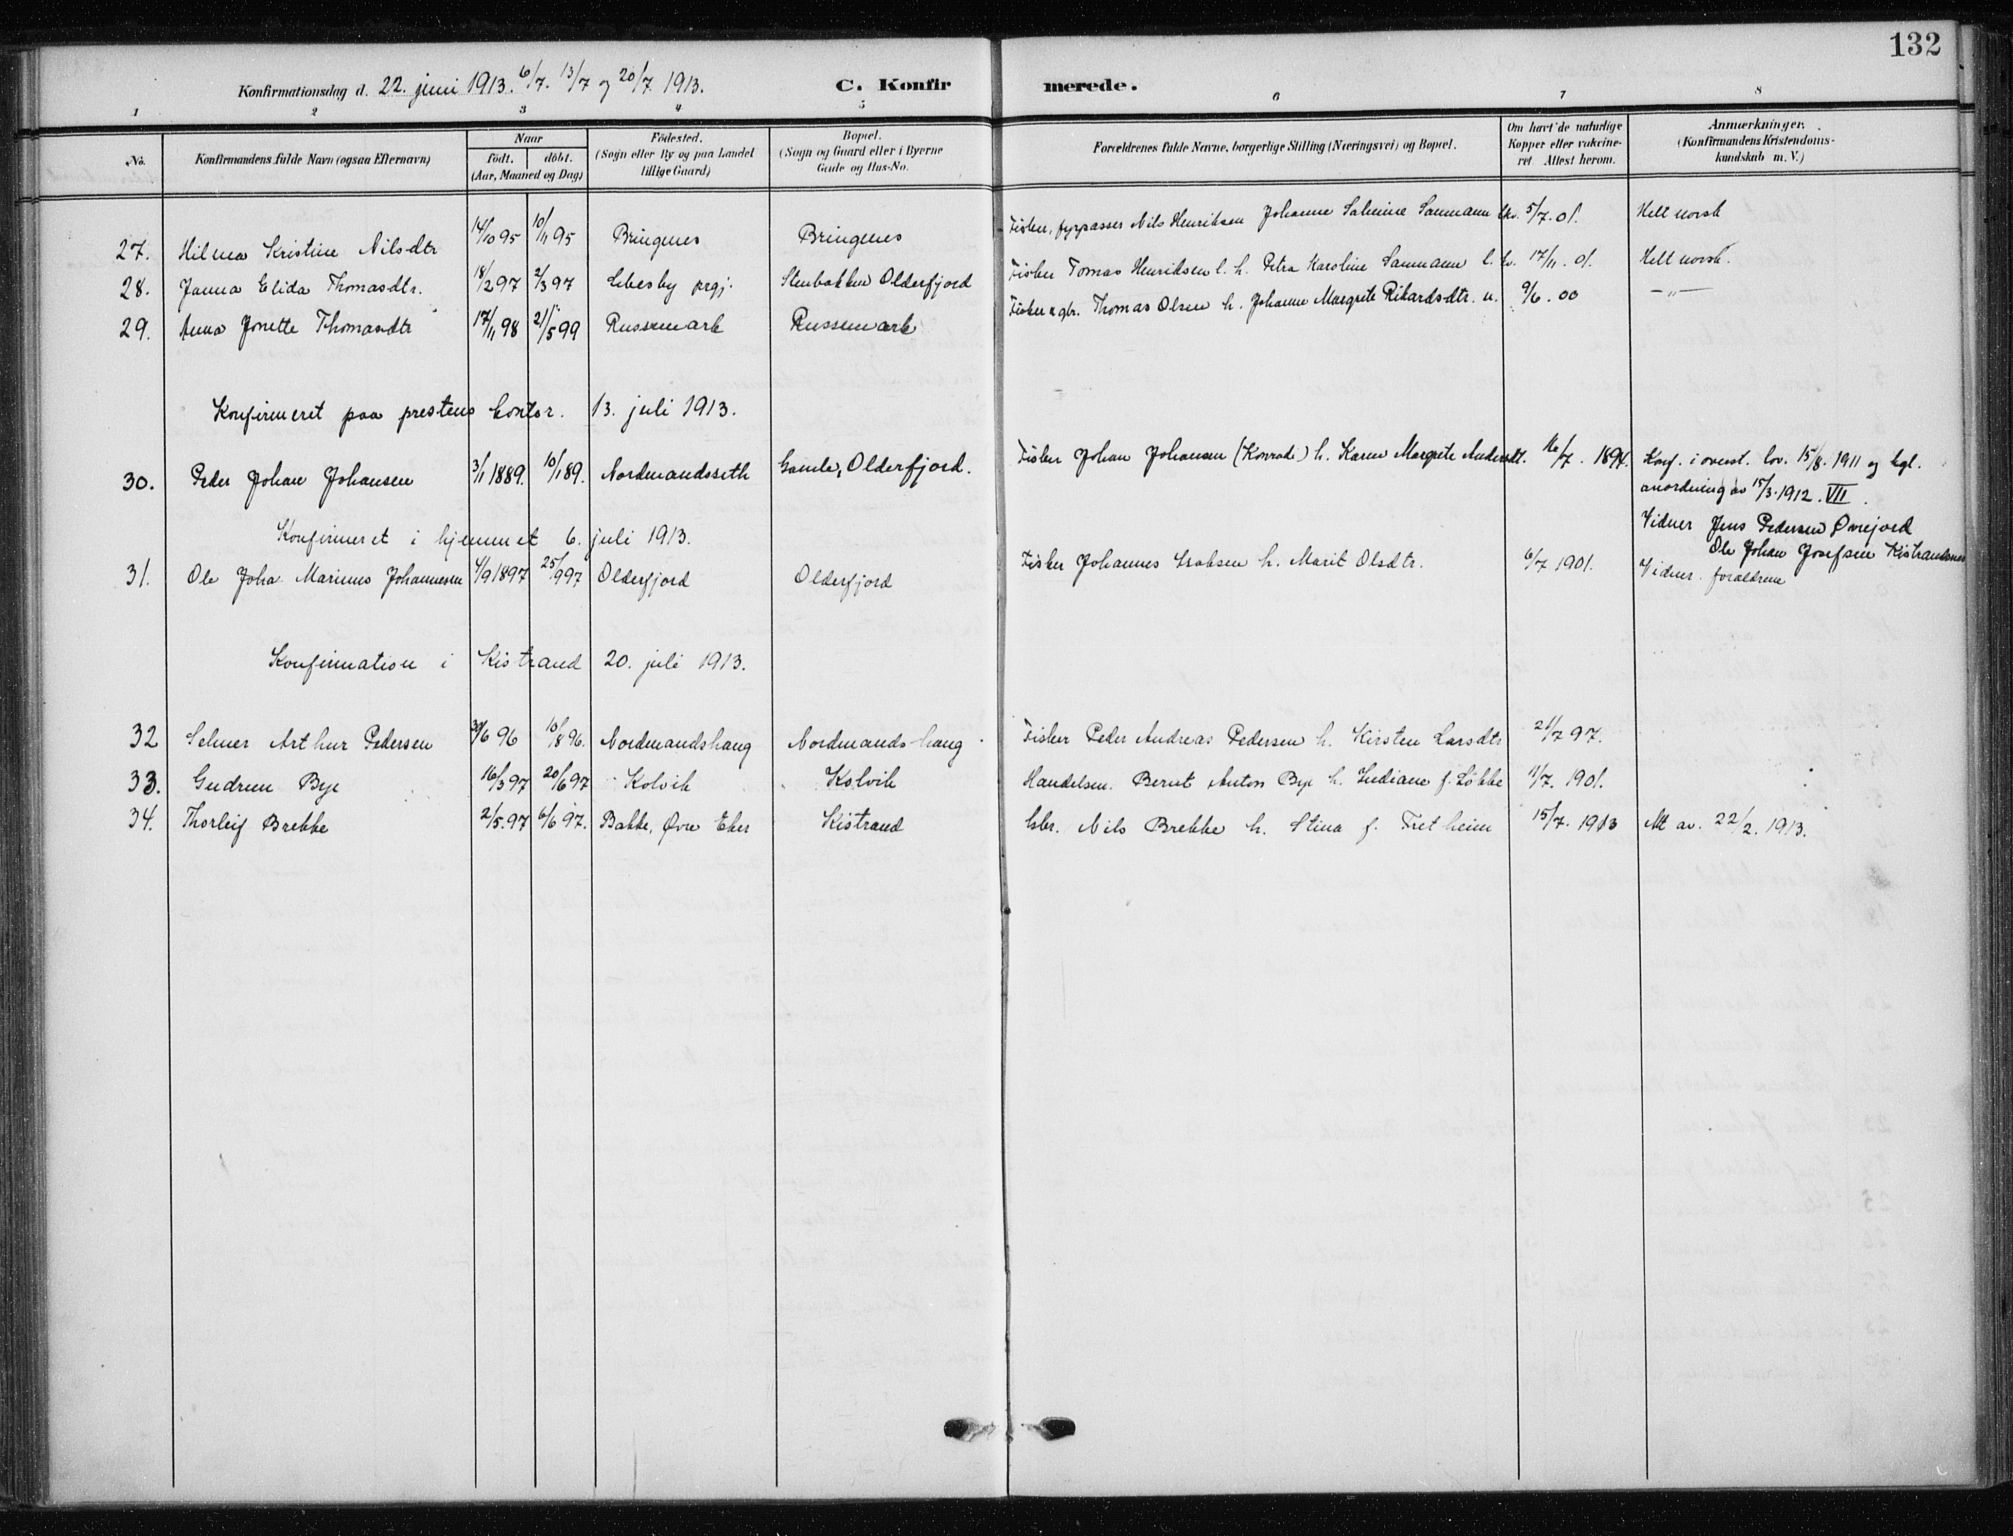 132
Konfirmationsdag d. 22. juni 1913. 6/7. 13/7 og 20/7 1913. C. Konfirmerede.
1 2 3 4 5 6 7 8
No. Konfirmandens fulde Navn (ogsaa Efternavn) Naar født. døbt. (Aar, Maaned og Dag) Fødested. (Sogn eller By og paa Landet tillige Gaard) Bopæl. (Sogn og Gaard eller i Byerne Gade og Hus-No. Forældrenes fulde Navne, borgerlige Stilling (Næringsvei) og Bopæl. Om havt de naturlige Kopper eller vakcineret Attest herom. Anmærkninger. (Konfirmandens Kristendomskundskab m. V.)
27. Hilma Kristine Nilsdtr 14/10 95 10/11 95 Bringenes Bringenes Fisker, fyrpasser Nils Henriksen Johanne Sabmine Sammann 5/7. 01. Helt norsk
28. Janna Elida Thomasdtr. 18/2 97 2/3 97 Lebesby prgj. Stenbakken Olderfjord Fisker Tomas Henriksen l. h. Petra Karoline Sammann l. 17/11. 01. Helt norsk.
29. Anna Jonette Thomasdtr 17/11 98 21/5 99 Russemark Russemark Fisker & gbr. Thomas Olsen h. Johanne Margrete Rikardsdtr. n. 9/6. 00 —"—
Konfirmeret paa prestens kontor. 13. juli 1913.
30. Peder Johan Johansen 3/1 1889. 10/1 89. Nordmandsseth Gamle, Olderfjord. Fisker Johan Johansen (Konrad) h. Karen Margrete Andersdt. 16/7. 1894. Konf. i overst. lov. 15/8. 1911 og kgl.
anordning av 15/3. 1912. VII.
Vidner Jens Pedersen Øvrejord
Ole Johan Josefsen Kistrandsnes
Konfirmeret i hjemmet 6. juli 1913.
31. Ole Joha. Marinus Johannesen 4/9 1897 25/9 97 Olderfjord Olderfjord Fisker Johannes Isaksen h. Marit Olsdtr. 6/7 1901. Vidner. forældrene
Konfirmation i Kistrand 20. juli 1913.
32 Selmer Arthur Pedersen 30/6 96 10/8 96. Nordmandshaug Nordmandshaug Fisker Peder Andreas Pedersen h. Kirsten Larsdtr 21/7 97.
33. Gudrun Bye 16/3 97 20/6 97 Kolvik Kolvik Handelsm. Bernt Anton Bye h. Indiane f. Løkke 1/7. 1901.
34. Thorleif Brekke 2/5. 97 6/6 97. Bakke, Øvre Eker Kistrand Nils Brekke h. Stina f. Fretheim 15/7. 1913 Att av. 22/2. 1913.